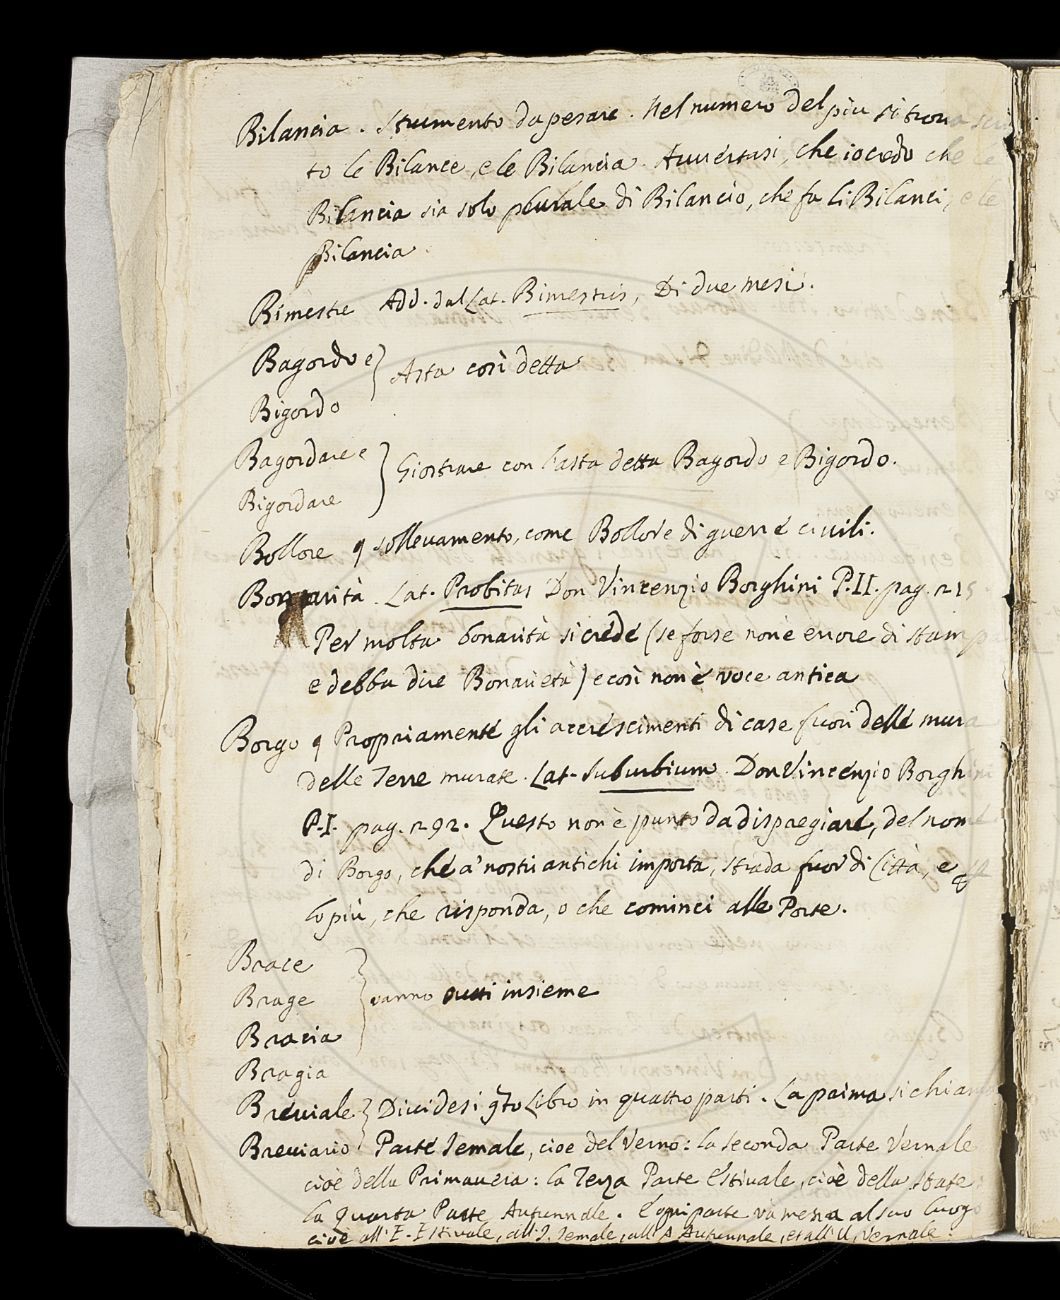 Bilancia. Strumento da pesare. Nel numero del piu si trova scrit
to le Bilance, e le Bilancia. Avvertasi, che io credo che le
Bilancia sia solo plurale di Bilancio, che fa li Bilanci, e le
Bilancia
Bimestre Add. dal Lat. Bimestris, Di due mesi.
Bagordo e } Asta così detta
Bigordo
Bagordare e } Giostrare con l'asta detta Bagordo e Bigordo.
Bigordare
Bollore q sollevamento, come Bollore di guerre civili.
Bonarità. Lat. Probitas Don Vincenzio Borghini P. II. pag. 215
Per molta bonarità si crede (se forse non è errore di stampa
e debba dire Bonarietà) e così non è voce antica
Borgo q Propriamente gli accrescimenti di case fuori delle mura
delle Terre murate. Lat. Suburbium. Don Vincenzio Borghini
P. I. pag. 292. Questo non è punto da dispregiare, del nome
di Borgo, che a' nostri antichi importa, strada fuor di Città, e
lo più, che risponda, o che cominci alle Porte.
Brace
Brage } vanno tutti insieme
Bracia
Bragia
Breviale } Dividesi qto Libro in quattro parti. La prima si chiama
Breviario } Parte Iemale, cioe del Verno: la seconda Parte Vernale
cioè della Primavera: la Terza Parte Estivale, cioè della state:
la Quarta Parte Autunnale. E ogni parte và messa al suo luogo
cioe all'E. Estivale, all'I. Iemale, all'A Autunnale, et all'U, Vernale.